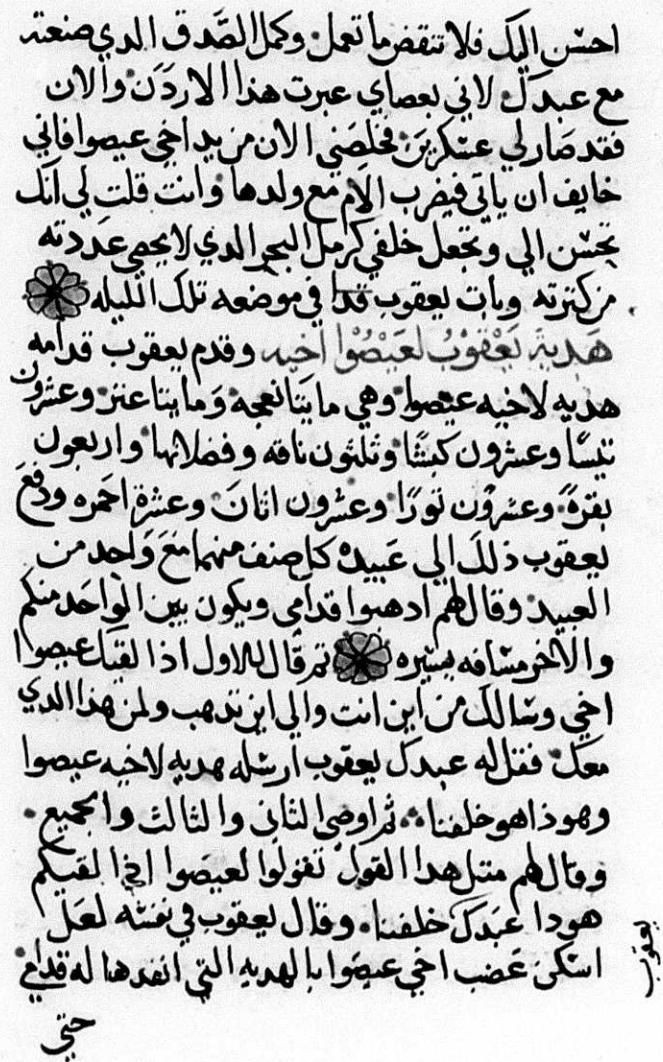 احسن اليك فلا تنقض ما تعمل وكمل الصَّدق الدي صنعته
مع عبدك لاني بعصاي عبرت هدا الاردن والان
فقد صار لي عسكرين فخلصني الان من يد اخي عيصوا فاني
خايف ان ياتي فيضرب الام مع ولدها وانت قلت لي انك
تحسن الي وتجعل خلفي كرمل البحر الدي لا يحصي عددته
من كترته وبات يعقوب في موضعه تلك الليله
هَدية يَعْقوْبُ لعَيْصُوْا اخيه وقدم يعقوب قدامه
هديه لاخيه عيصوا وهي مايتا نعجه ومايتا عنز وعشرون
تيسًا وعشرون كبشًا وثلثون ناقه وفضلانها واربعون
بقرة وعشرون تورًا وعشرون اتان وعشرة احمره ودفع
يعقوب ذلك الي عَبيدهْ كل صنف منهما مع وَاحد من
العبيد وقال لهم ادهبوا قدامي ويكون بين الواحد منكم
والاخر مسَافه يسيره تم قال للاول ادا لقيك عيصوا
اخي وسالك من اين انت والي اين تدهب ولمن هدا الدي
معك فقل له عبدك يعقوب ارسله هديه لاخيه عيصوا
وهو ذا هو خلفنا ثم اوصي الثاني والثالث والجميع
وقال لهم متل هدا القول تقولوا لعيصوا اذا لقيكم
هودا عبدك خلفنا وقال يعقوب في نفسه لعل
اسكن غضب اخي عيصوا بالهديه التي انفدها له قدامي
يعقوب
حتي